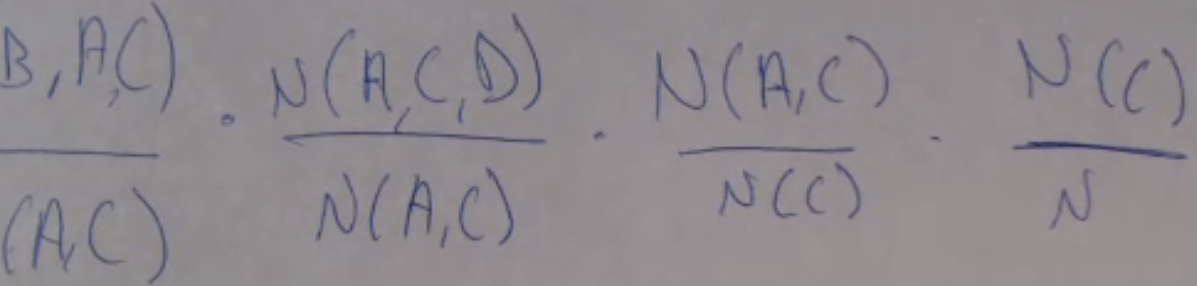 B,A,C) · N(A,C,D) · N(A,C) · N(C)
(A,C) N(A,C) N(C) N